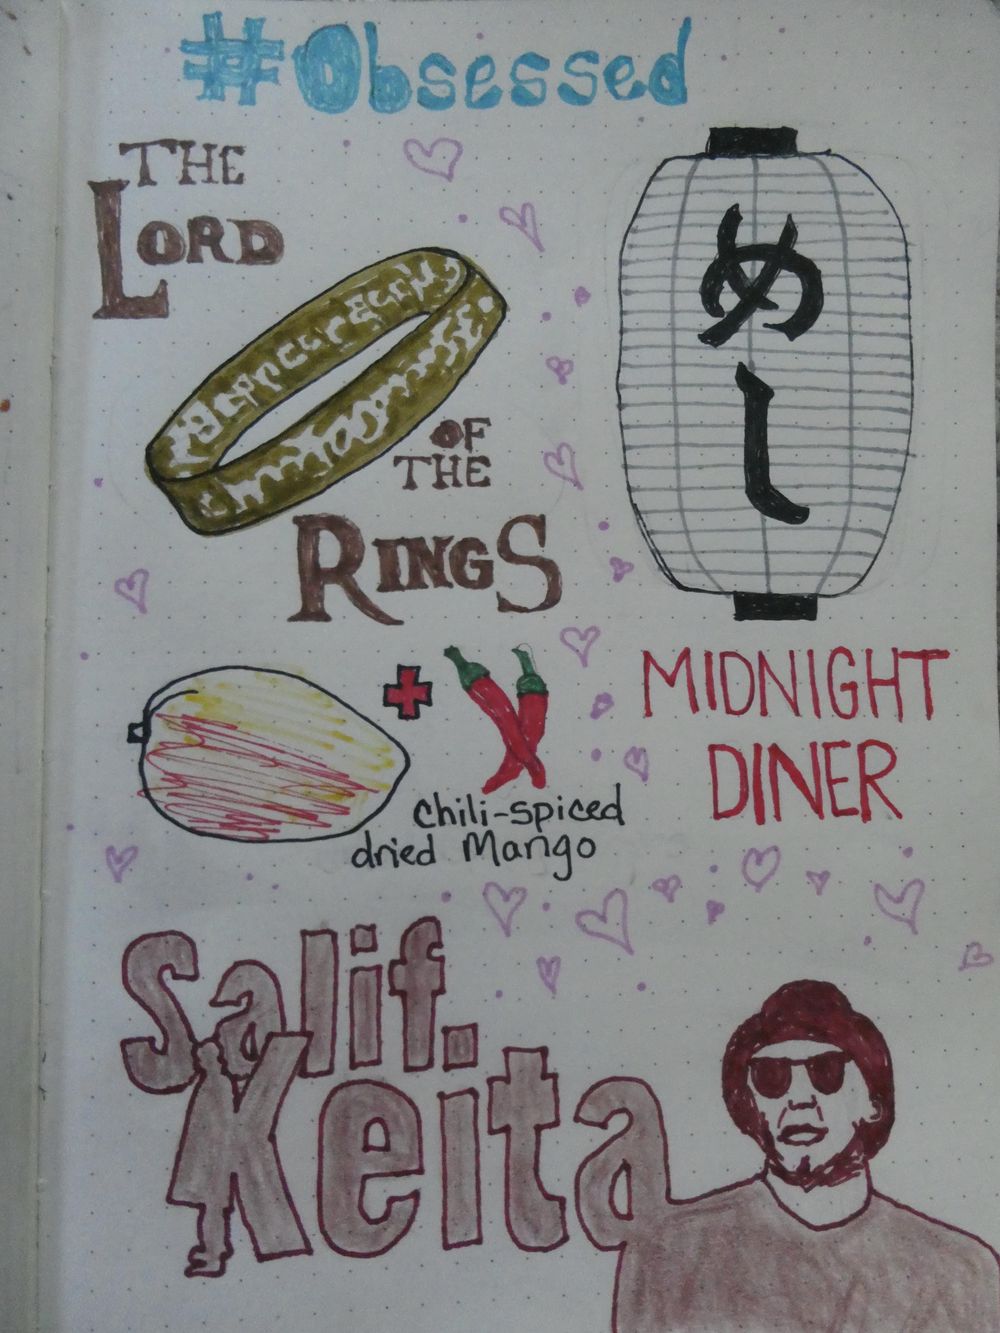 #Obsessed
THE
LORD
OF
THE
RINGS
めし
MIDNIGHT
DINER
chili-spiced
dried Mango
Salif
Keita